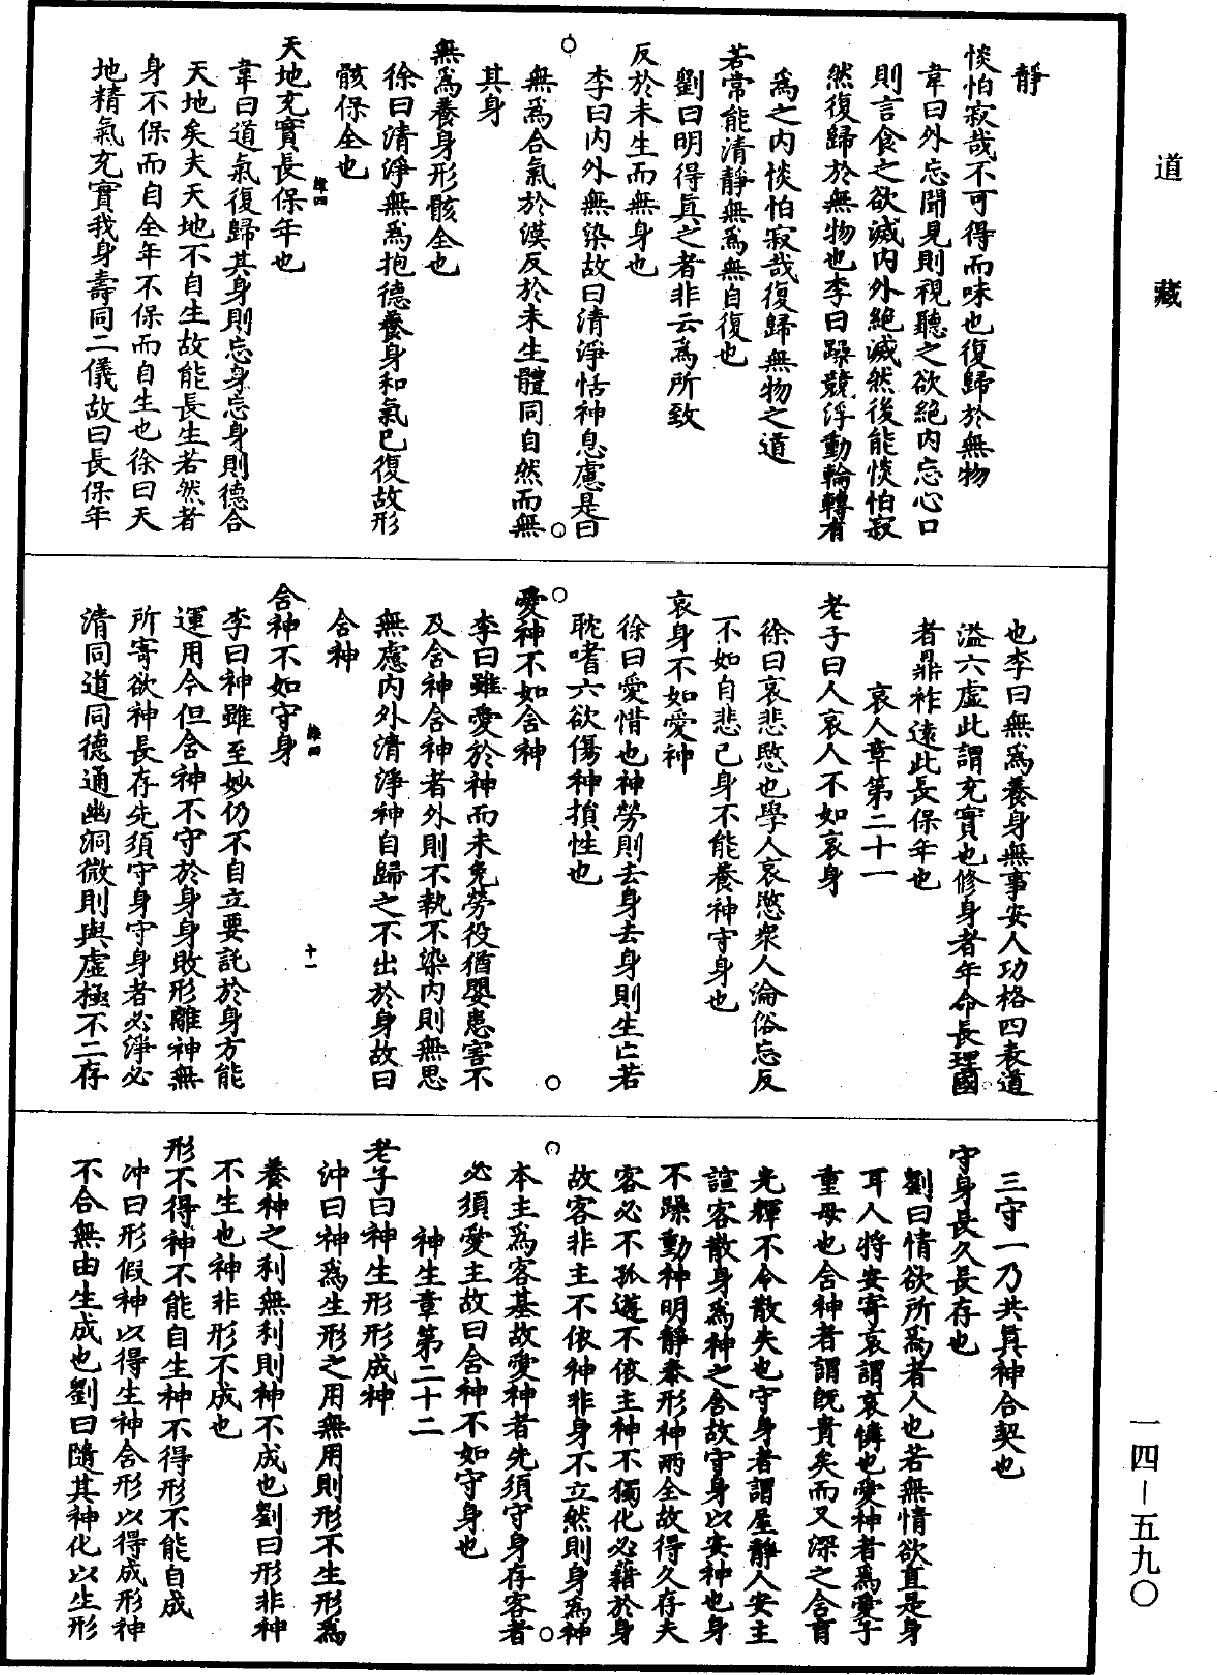 道藏
靜
惔怕寂哉不可得而味也復歸於無物
韋曰外忘聞見則視聽之欲絕內忘心口
則言食之欲滅內外絕滅然後能惔怕寂
然復歸於無物也李曰躁競浮動輪轉有
為之內惔怕寂哉復歸無物之道
若常能清靜無為無自復也
劉曰明得真之者非云為所致
反於未生而無身也
李曰內外無染故曰清淨恬神息慮是曰
無為合氣於漠反於未生體同自然而無
其身
無為養身形骸全也
徐曰清淨無為抱德養身和氣已復故形
骸保全也
天地充實長保年也
韋曰道氣復歸其身則忘身忘身則德合
天地矣夫天地不自生故能長生若然者
身不保而自全年不保而自生也徐曰天
地精氣充實我身壽同二儀故曰長保年
也李曰無為養身無事安人功格四表道
溢六虛此謂充實也修身者年命長理國
者鼎祚遠此長保年也
哀人章第二十一
老子曰人哀人不如哀身
徐曰哀悲愍也學人哀愍衆人淪俗忘反
不如自悲己身不能養神守身也
哀身不如愛神
徐曰愛惜也神勞則去身去身則生亡若
耽嗜六欲傷神損性也
愛神不如含神
李曰雖愛於神而未免勞役猶嬰患害不
及含神含神者外則不執不染內則無思
無慮內外清淨神自歸之不出於身故曰
含神
含神不如守身
李曰神雖至妙仍不自立要託於身方能
運用今但含神不守於身身敗形離神無
所寄欲神長存先須守身守身者必淨必
清同道同德通幽洞微則與虛極不二存
十一
三守一乃共真神合契也
守身長久長存也
劉曰情欲所為者人也若無情欲直是身
耳人將安寄哀謂哀憐也愛神者為愛子
重母也含神者謂既貴矣而又深之含育
光輝不令散失也守身者謂屋靜人安主
諠客散身為神之舍故守身以安神也身
不躁動神明靜泰形神兩全故得久存夫
客必不孤遊不依主神不獨化必藉於身
故客非主不依神非身不立然則身為神
本主為客基故愛神者先須守身存客者
必須愛主故曰含神不如守身也
神生章第二十二
老子曰神生形形成神
沖曰神為生形之用無用則形不生形為
養神之利無利則神不成也劉曰形非神
不生也神非形不成也
形不得神不能自生神不得形不能自成
沖曰形假神以得生神含形以得成形神
不合無由生成也劉曰隨其神化以生形
一四—五九〇